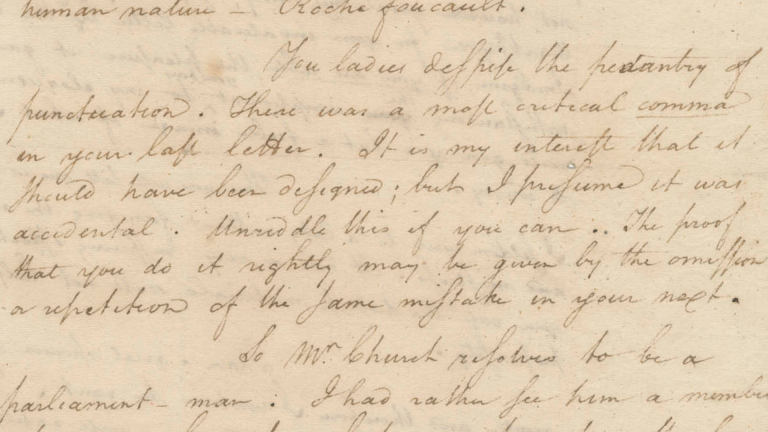 human nature – Rochefoucault.
You ladies despise the pedantry of
punctuation. There was a most critical comma
in your last letter. It is my interest that it
should have been designed; but I presume it was
accidental. Unriddle this if you can.. The proof
that you do it rightly may be given by the omission
or repetition of the same mistake in your next.
So Mr. Church resolves to be a
parliament-man: I had rather see him a member